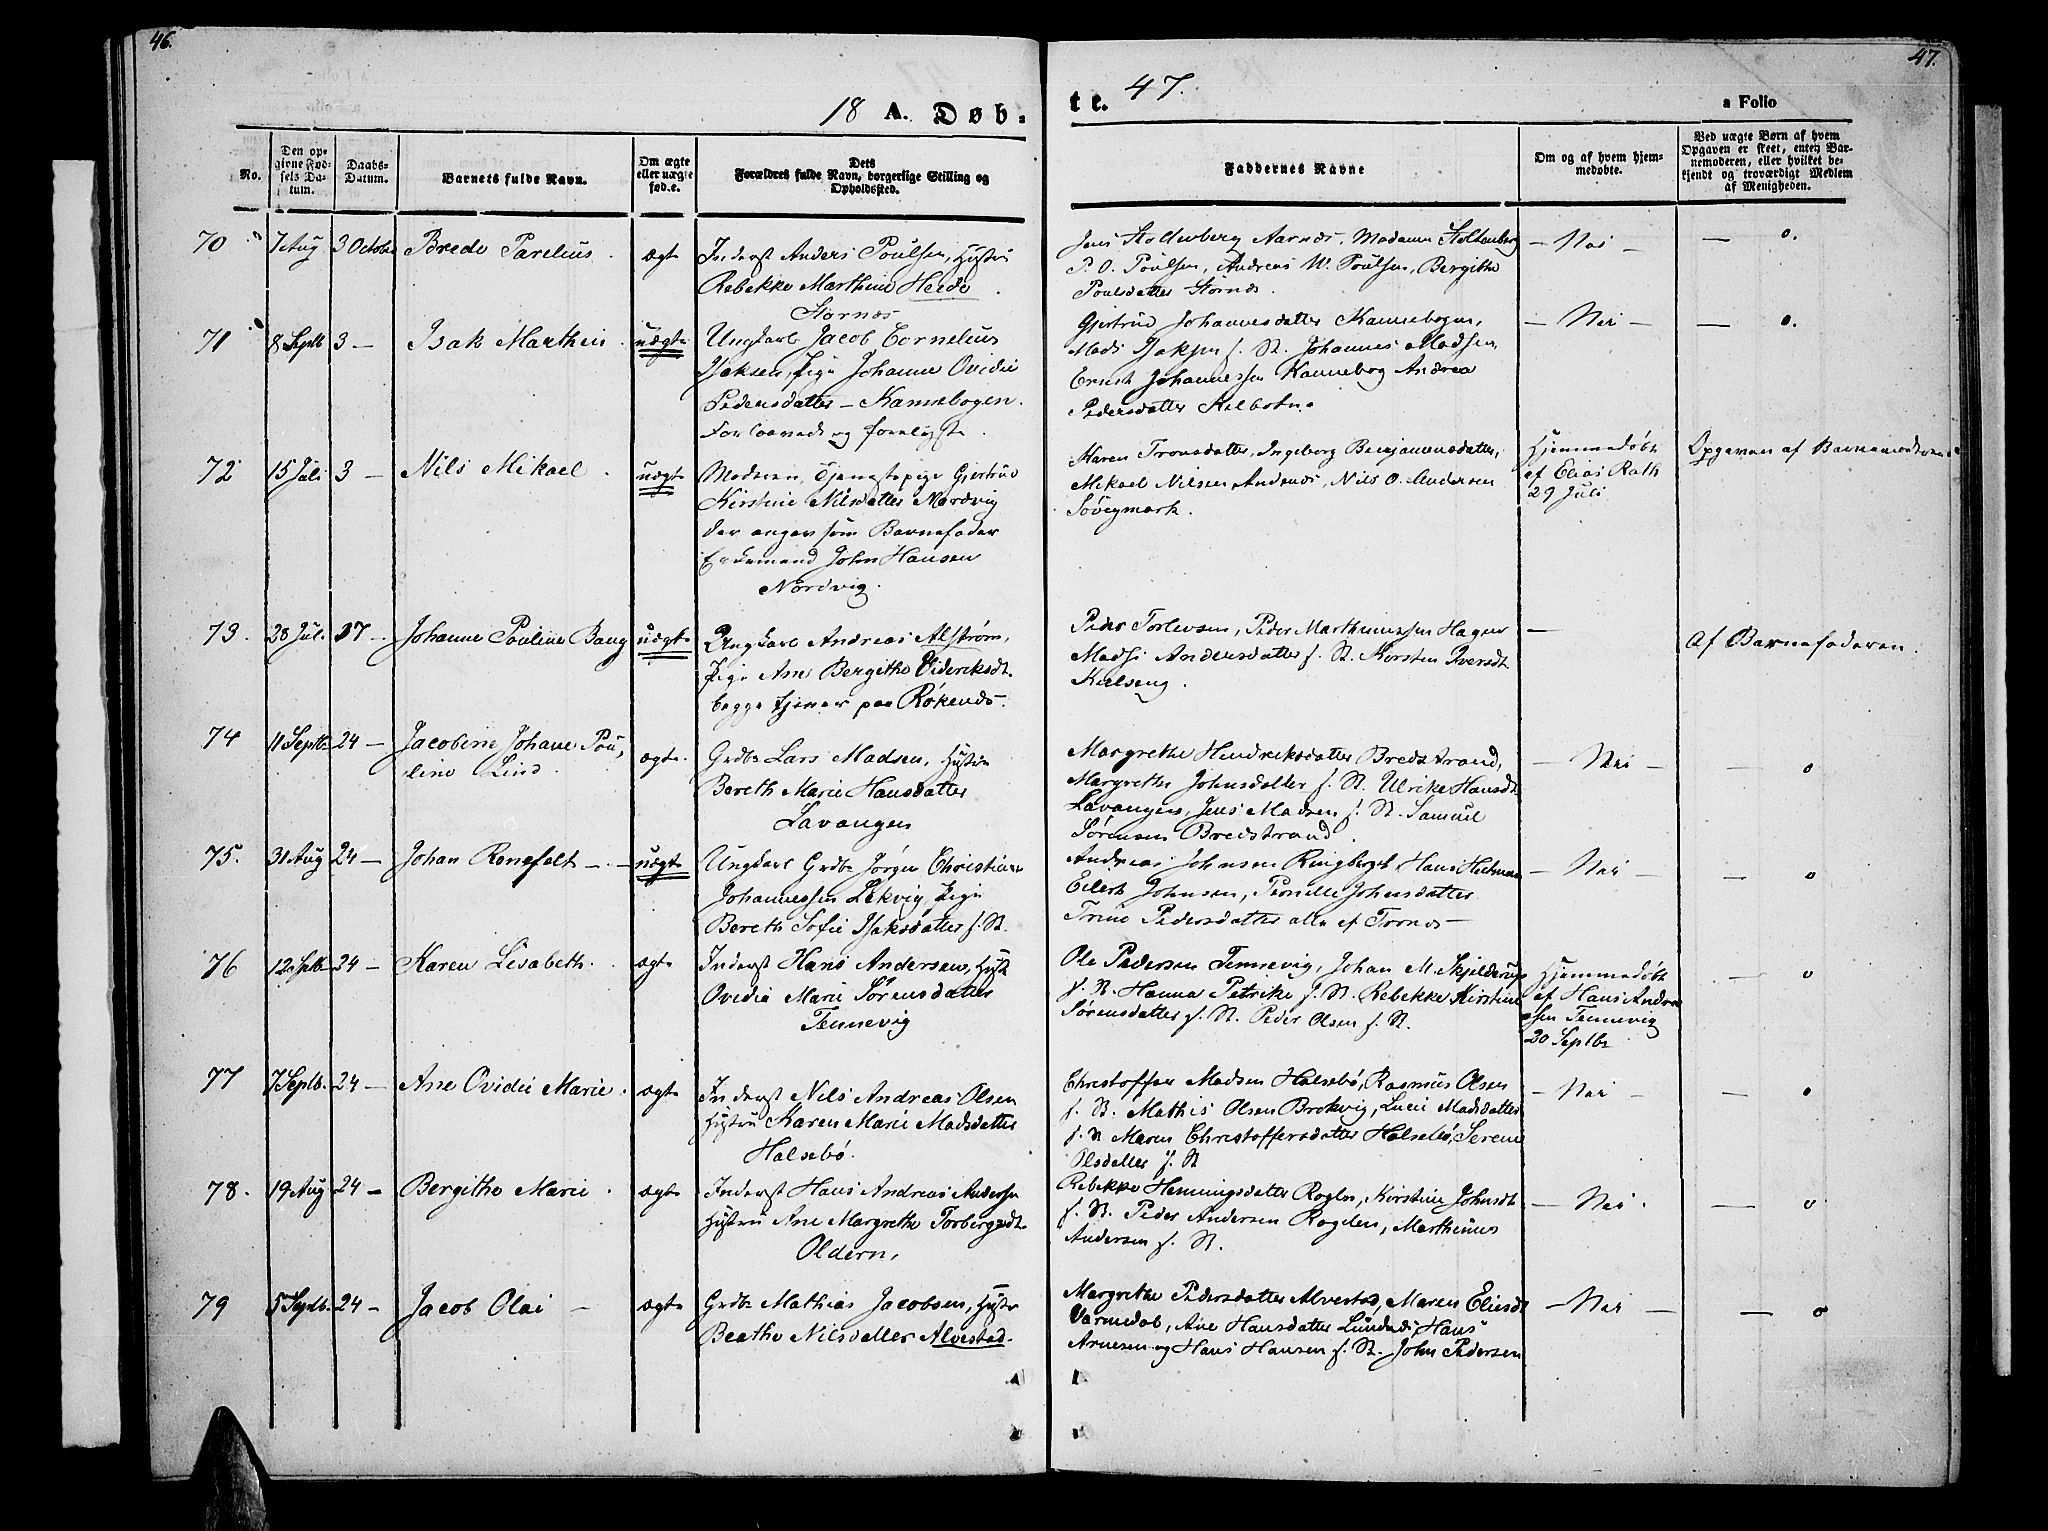 46.
47.
18 A. Døb-
te. 47.
a Folio
No.
Den op-
givne Fød-
sels Da-
tum.
Daabs-
Datum.
Barnets fulde Navn.
Om ægte
eller uægte
fød.e.
Dets
Forældres fulde Navn, borgerlige Stilling og
Opholdssted.
Faddernes Navne
Om og af hvem hjem-
medøbte.
Ved uægte Børn af hvem
Opgaven er skeet, enten Bar-
nemoderen, eller hvilket be-
kjendt og troværdigt Medlem
af Menigheden.
70 7 Aug 3 Octobr Brede Parelius. ægt
Inderst Anders Poulsen, Hustru
Rebekke Marthine Heede
Starnes
Jens Stoltenberg Aarnes, Madame Stoltenberg
P. O. Poulsen, Andreas W. Poulsen, Bergithe
Poulsdatter Stornes.
— Nei —
— o.
71 8 Septb 3 — Isak Marthin. uægte
Ungkarl Jacob Cornelius
Isaksen, Pige Johanne Ovidie
Pedersdatter — Kannebogen.
Forlovede og foreligste.
Gjertrud Johannesdatter Kannebogen,
Mads Isaksen f. St. Johannes Madsen,
Ernst Johannessen Kannebog Andrea
Pedersdatter Kilbotn.
— Nei —
— o.
72 15 Juli 3 — Nils Mikael. uægte
Moderen, Tjenestepige Gjertrud
Kirstine Nilsdatter Nordvig
der angav som Barnefader
Enkemand John Hansen
Nordvig.
Maren Tronsdatter, Ingeborg Benjaminsdatter,
Mikael Nilsen Andenes, Nils O. Andersen
Søvegmark.
Hjemmedøbt
af Elias Rath
29 Juli
Opgaven af Barnemoderen
73. 28 Jul. 17 — Johanne Pauline Bang uægte
Ungkarl Andreas Alstrøm,
Pige Ane Bergithe Videriksdt.
begge tjener paa Røkenes.
Peder Torlevsen, Peder Marthinussen Hagen
Madsi Andersdatter f. St. Kirsten Iversdt
Kielseng.
—
Af Barnefaderen.
74 11 Septb 24 — Jacobine Johane Pou-
line Lind. ægte.
Grdbr Lars Madsen, Hustru
Bereth Marie Hansdatter
Lavangen
Margrethe Hendriksdatter Bredstrand,
Margrethe Johnsdatter f. St. Ulrike Hansdt
Lavangen, Jens Madsen f. St. Samuel
Sørensen Bredstrand.
— Nei —
— o
75. 31 Aug 24 — Johan Renefalt — uægte
Ungkarl Grdbr Jørgen Christian
Johannessen Lekvig, Pige
Bereth Sofie Isaksdatter f. St.
Andreas Johnsen Ringberget, Hans Heitman
Eilert Johnsen, Pernille Johnsdatter
Trine Pedersdatter alle af Trones —
— Nei —
— o
76 12 Septb 24 — Karen Lisabeth. ægte
Inderst Hans Andersen, Hust
Ovidia Marie Sørensdatter
Tennevig
Ole Pedersen Tennevig, Johan M. Skjelderup
f. St. Hanna Petrike f. St. Rebekke Kirstine
Sørensdatter f. St. Peder Olsen f. St.
Hjemmedøbt
af Hans Andre-
sen Tennevig
20 Septbr
— o
77 7 Septb. 24 — Ane Ovidie Marie. ægte
Inderst Nils Andreas Olsen
Hustru Karen Marie Madsdatter
Halsebø.
Christoffer Madsen Halsebø, Rasmus Olsen
f. St. Mathis Olsen Brokvig, Lucie Madsdatter
f. St Maren Christoffersdatter Halsebø, Serene
Olsdatter f. St
— Nei —
— o
78. 19 Aug 24 — Bergithe Marie. ægte
Inderst Hans Andreas Andersen
Hustru Ane Margrethe Torbergsdt
Oldern,
Rebekke Henningsdatter Roglen, Kirstine Johnsdt
f. St. Peder Andersen Rogden, Marthinus
Andersen f. St.
— Nei.
— o
79 5 Septb. 24 — Jacob Olai — ægte
Grdbr Mathias Jacobsen, Hustr
Beathe Nilsdatter Alvestad.
Margrethe Pedersdatter Alvestad, Maren Eliesdt
Varmedal, Ane Hansdatter Lundnes, Hans
Arnesen og Hans Hansen f. St. John Pedersen
— Nei —
— o